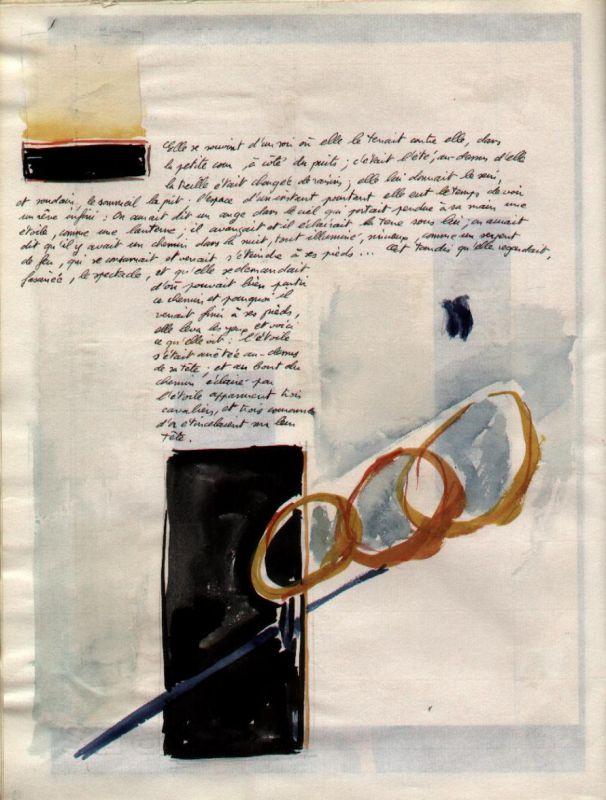 Elle se souvint d'un soir où elle le tenait contre elle, dans
la petite cour, à côté du puits ; c'était l'été, au-dessus d'elle
la treille était chargée de raisin ; elle lui donnait le sein,
et soudain, le sommeil la prit. l'espace d'un instant pourtant elle eut le temps de voir
un rêve infini : On aurait dit un ange dans le ciel qui portait pendue à sa main une
étoile, comme une lanterne ; il avançait et il éclairait la terre sous lui ; on aurait
dit qu'il y avait un chemin dans la nuit, tout illuminé, sinueux, comme un serpent
de feu, qui se consumait et venait s'éteindre à ses pieds... Cet tandis qu'elle regardait,
fascinée, le spectacle, et qu'elle se demandait
d'où pouvait bien partir
ce chemin et pourquoi il
venait finir à ses pieds,
elle leva les yeux et voici
ce qu'elle vit : l'étoile
s'était arrêtée au-dessus
de sa tête ; et au bout du
chemin éclairé par
l'étoile apparurent trois
cavaliers, et trois couronnes
d'or étincelaient sur leur
tête.